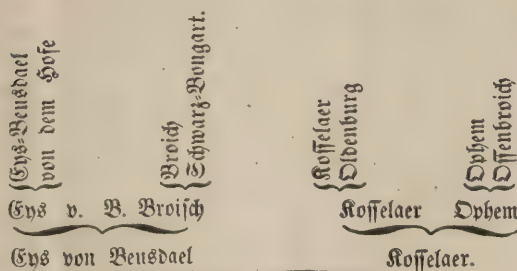 Eys-Beusdael
von dem Hofe
Broich
Schwarz-Bongart.
Kosselaer
Oldenburg
Ophem
Offenbroich
Eys v. B. Broisch
Kosselaer Ophem
Eys von Beusdael
Kosselaer.